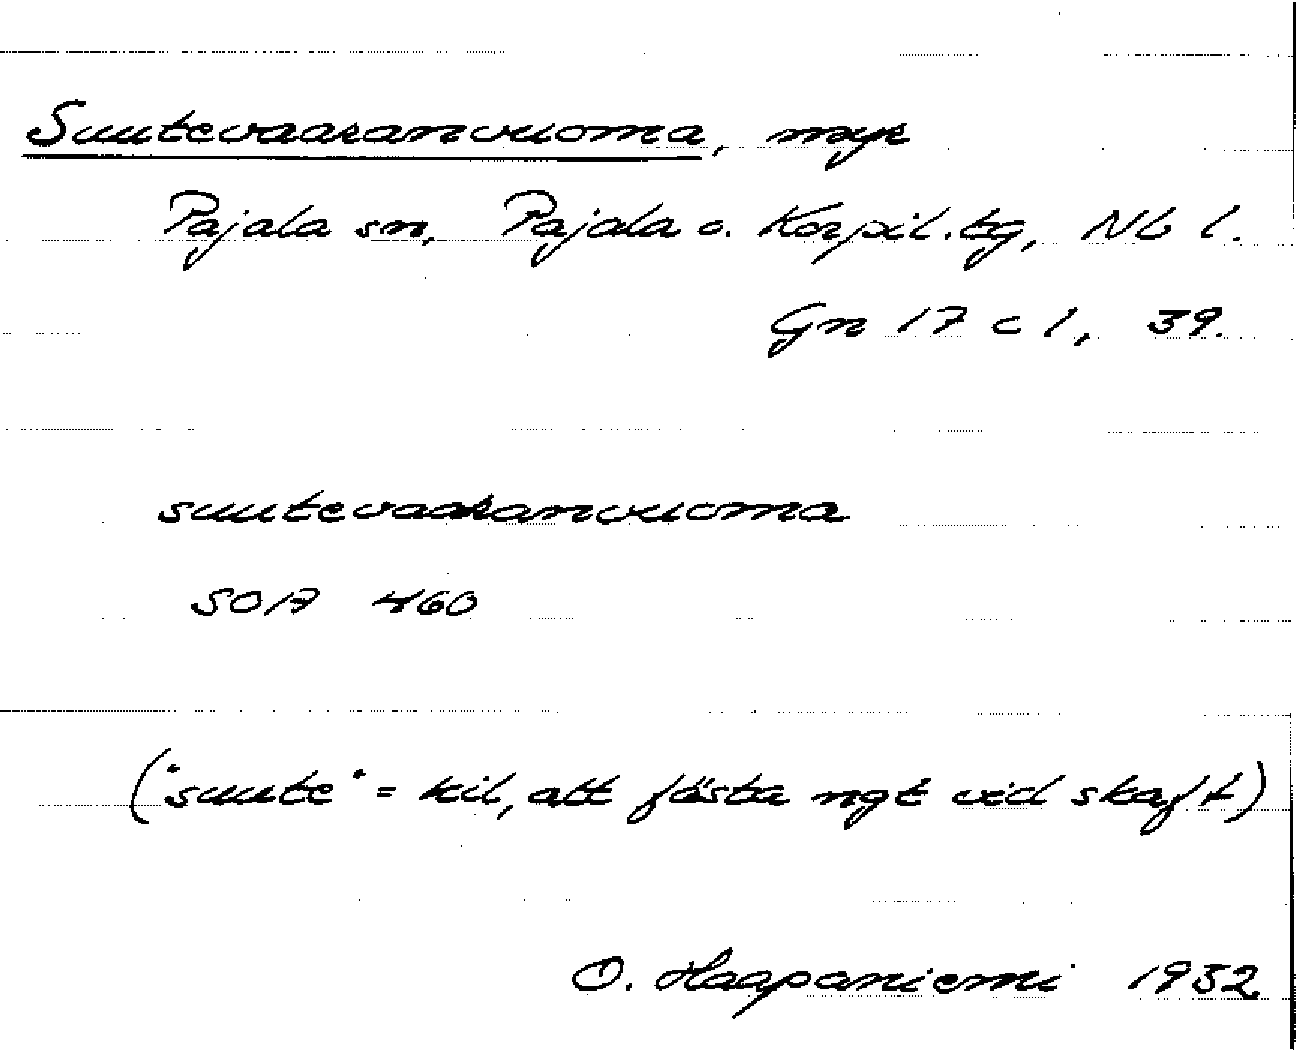 Suutevaaranvuoma, myr
Pajala sn, Pajala o. Korpil.tg, Nb l.
Gn 17 c 1, 39.
suutevaaranvuoma
SOA 460
("suute" = kil, att fästa ngt vid skaft)
O. Haapaniemi 1932